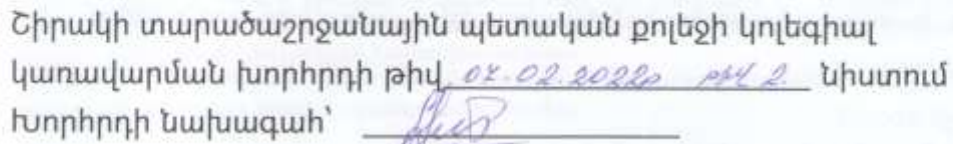 Շիրակի տարածաշրջանային պետական քոլեջի կոլեգիալ
կառավարման խորհրդի թիվ 07.02.2022թ թիվ 2 նիստում
Խորհրդի նախագահ՝